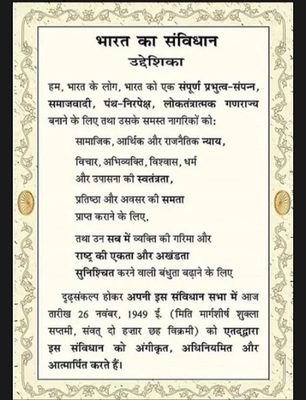 भारत का संविधान
उद्देशिका
हम, भारत के लोग, भारत को एक संपूर्ण प्रभुत्व-संपन्न,
समाजवादी, पंथ-निरपेक्ष, लोकतंत्रात्मक गणराज्य
बनाने के लिए तथा उसके समस्त नागरिकों को:
सामाजिक, आर्थिक और राजनैतिक न्याय,
विचार, अभिव्यक्ति, विश्वास, धर्म
और उपासना की स्वतंत्रता,
प्रतिष्ठा और अवसर की समता
प्राप्त कराने के लिए,
तथा उन सब में व्यक्ति की गरिमा और
राष्ट्र की एकता और अखंडता
सुनिश्चित करने वाली बंधुता बढ़ाने के लिए
दृढ़संकल्प होकर अपनी इस संविधान सभा में आज
तारीख 26 नवंबर, 1949 ई. (मिति मार्गशीर्ष शुक्ला
सप्तमी, संवत् दो हजार छह विक्रमी) को एतद्द्वारा
इस संविधान को अंगीकृत, अधिनियमित और
आत्मार्पित करते हैं।